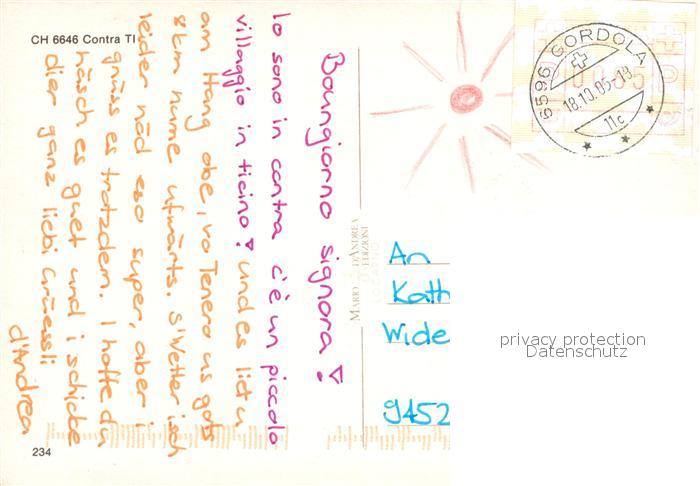 CH 6646 Contra TI
Boungiorno signora!
Io sono in contra c'è un piccolo
villaggio in ticino! und es liet u
am Hang obe, vo Tenero us gots
8 km nume ufwärts. S'Wetter isch
leider näd eso super, aber i
grüss es trotzdem. I hoffe du
häsch es guet und i schicke
dier ganz liebi Grüessli
d'Andrea
234
MARIO D'ANDREA
EDIZIONI
6596 GORDOLA
18.10.05-18
11c
An
Kath
Wide
9452
privacy protection
Datenschutz